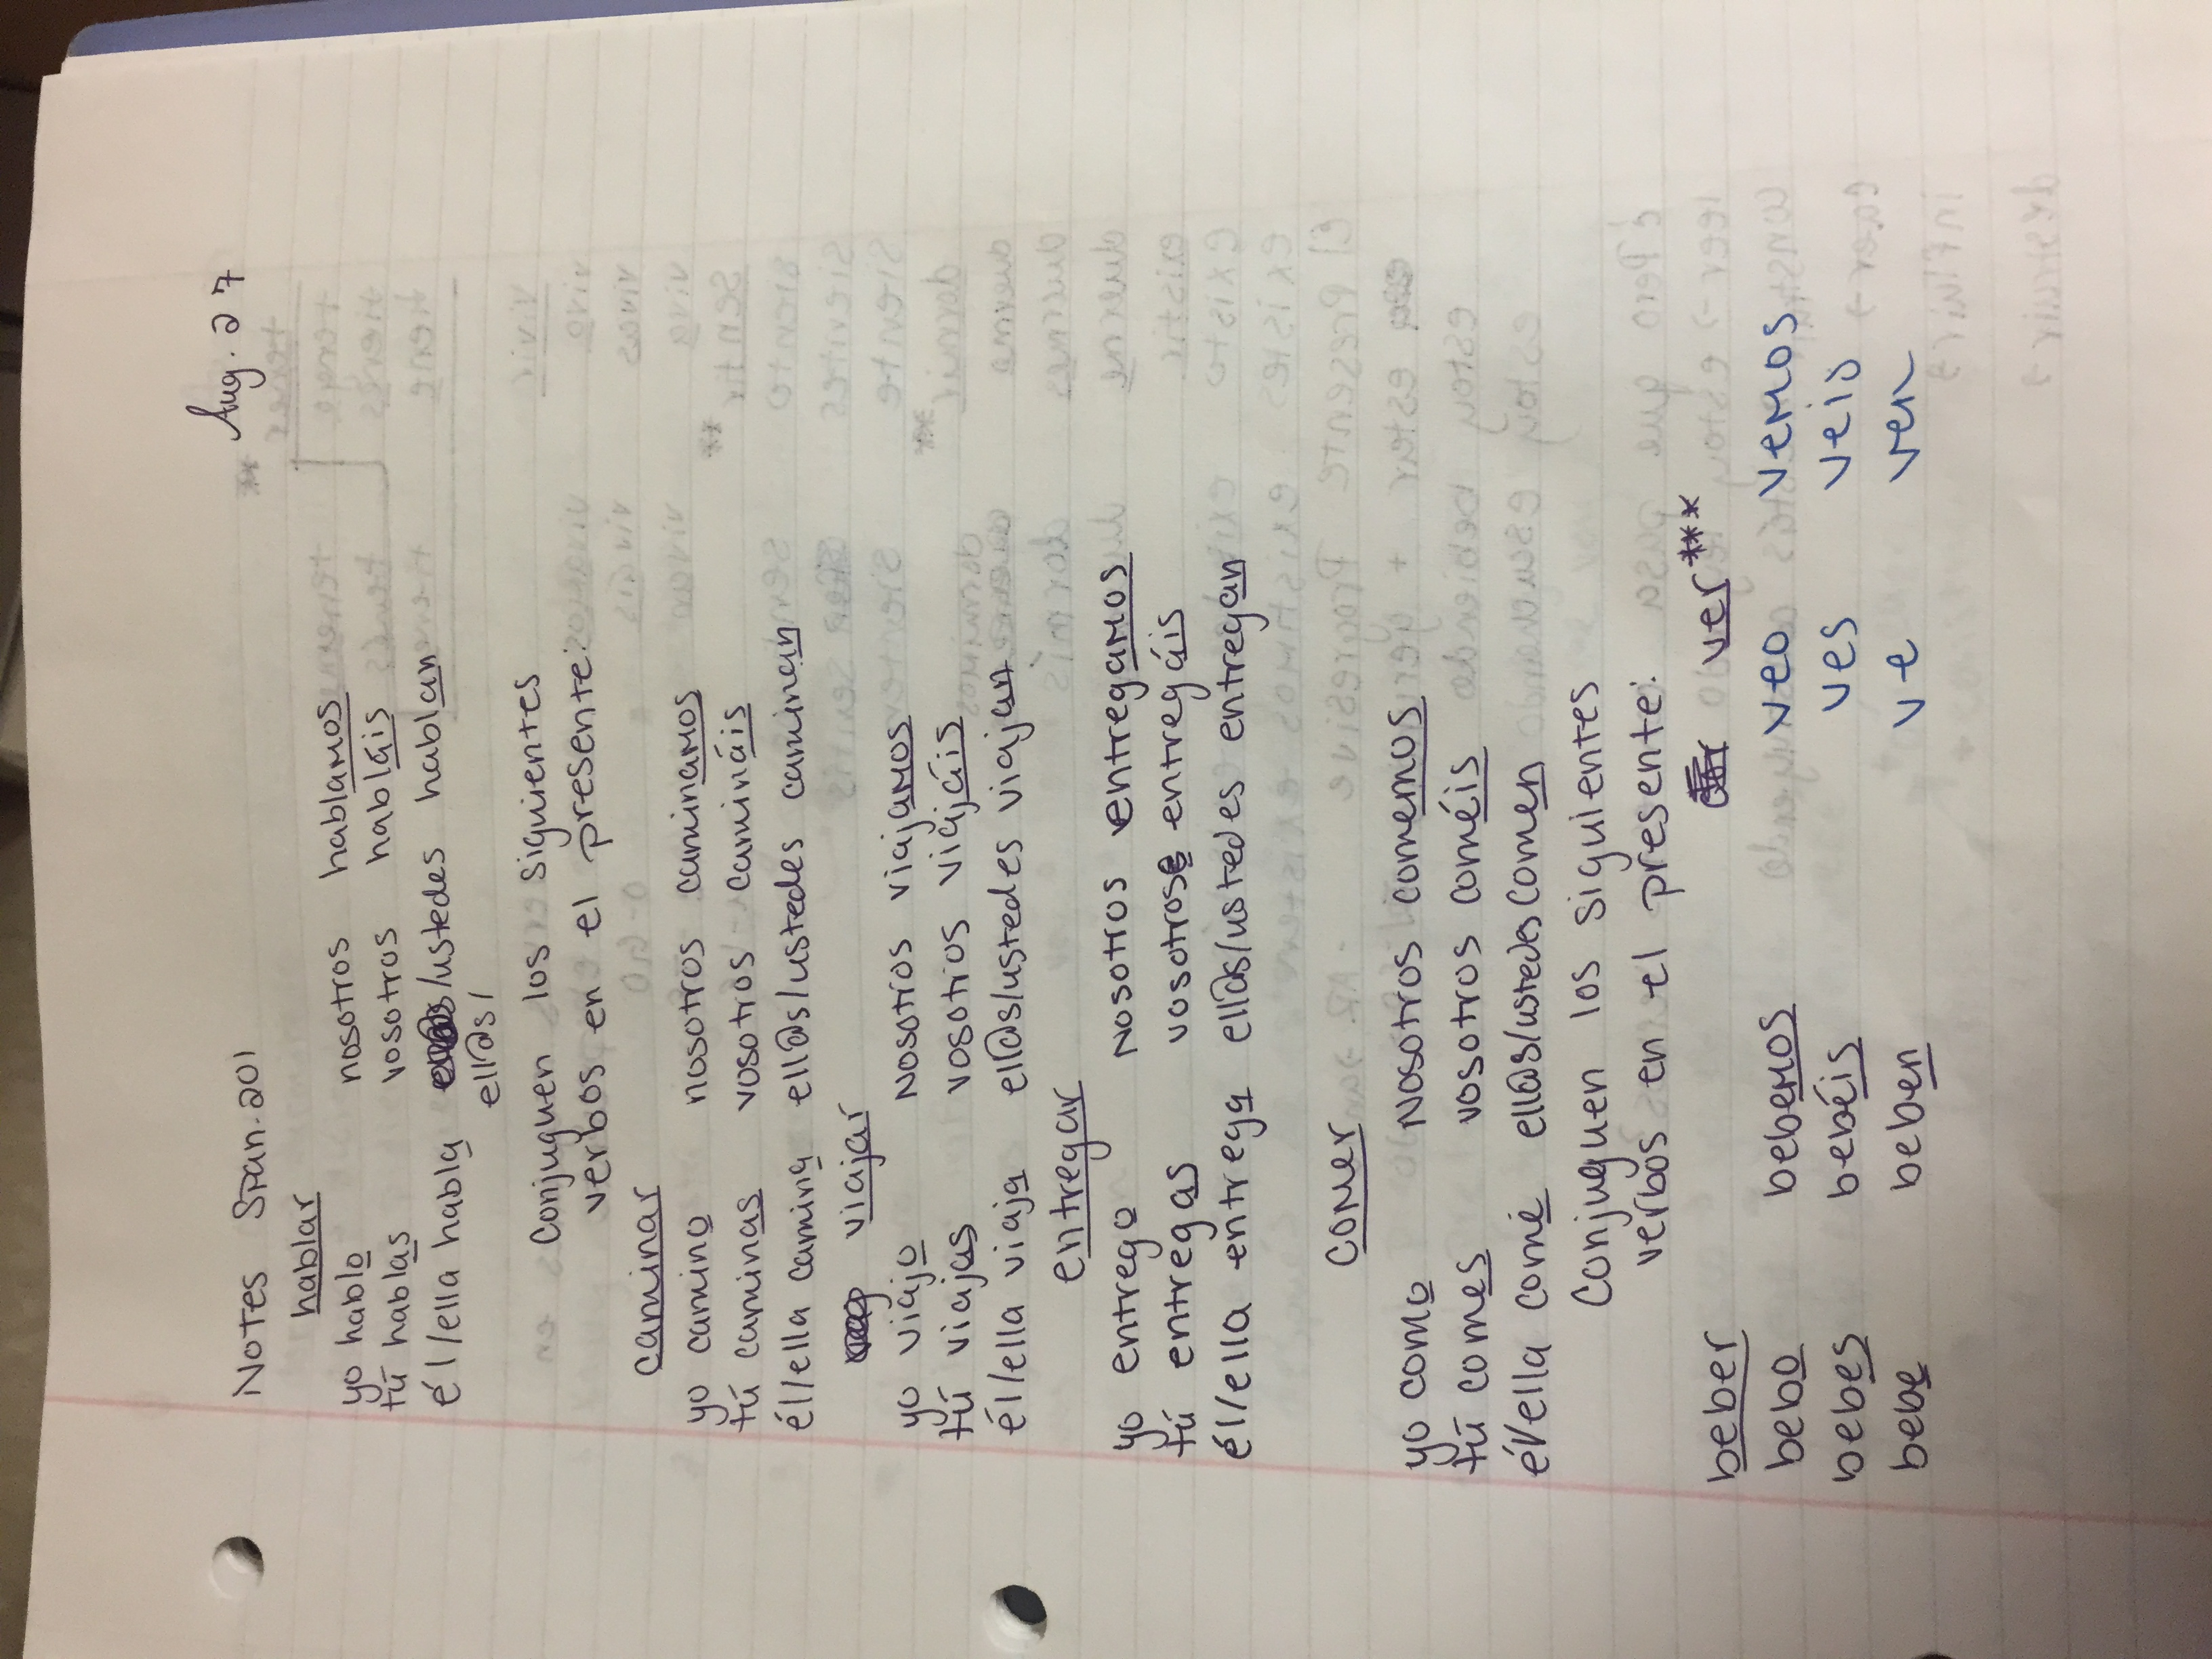 Notes Span. 201 Aug. 27
hablar
yo hablo nosotros hablamos
tú hablas vosotros habláis
él/ella habla /ustedes hablan
ell@s/
Conjuguen los siguientes
verbos en el presente:
caminar
yo camino nosotros caminamos
tú caminas vosotros camináis
él/ella camina ell@s/ustedes caminan
viajar
yo viajo nosotros viajamos
tú viajas vosotros viajáis
él/ella viaja ell@s/ustedes viajan
entregar
yo entrego nosotros entregamos
tú entregas vosotros entregáis
él/ella entrega ell@s/ustedes entregan
comer
yo como nosotros comemos
tú comes vosotros coméis
él/ella come ell@s/ustedes comen
Conjuguen los siguientes
verbos en el presente:
beber ver***
bebo bebemos veo vemos
bebes bebéis ves veis
bebe beben ve ven